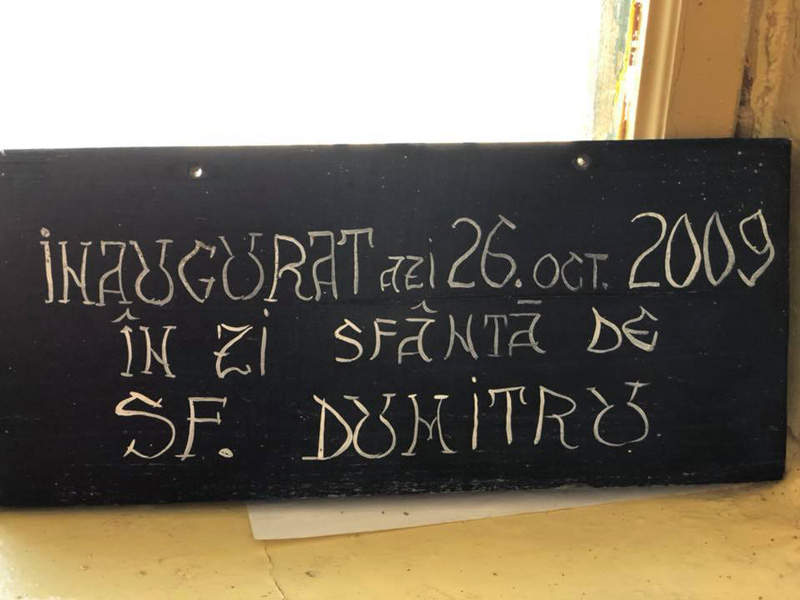 İNAUGURAT azi 26. OCT. 2009
ÎN Zi SFÂNTĂ DE
SF. DUMiTRU